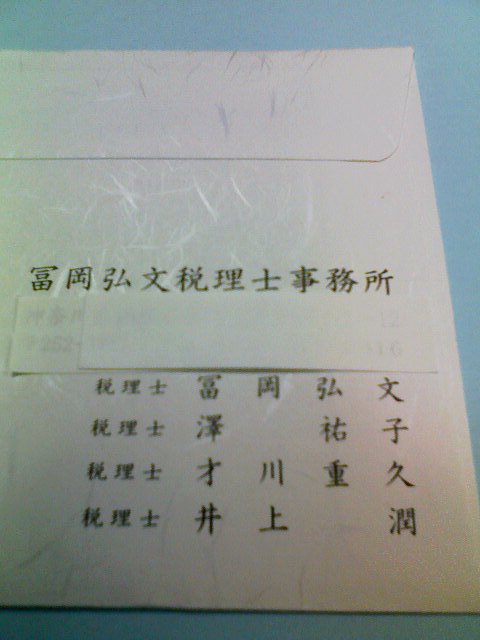 冨岡弘文税理士事務所
税理士 冨岡弘文
税理士 澤 祐子
税理士 才川重久
税理士 井上 潤